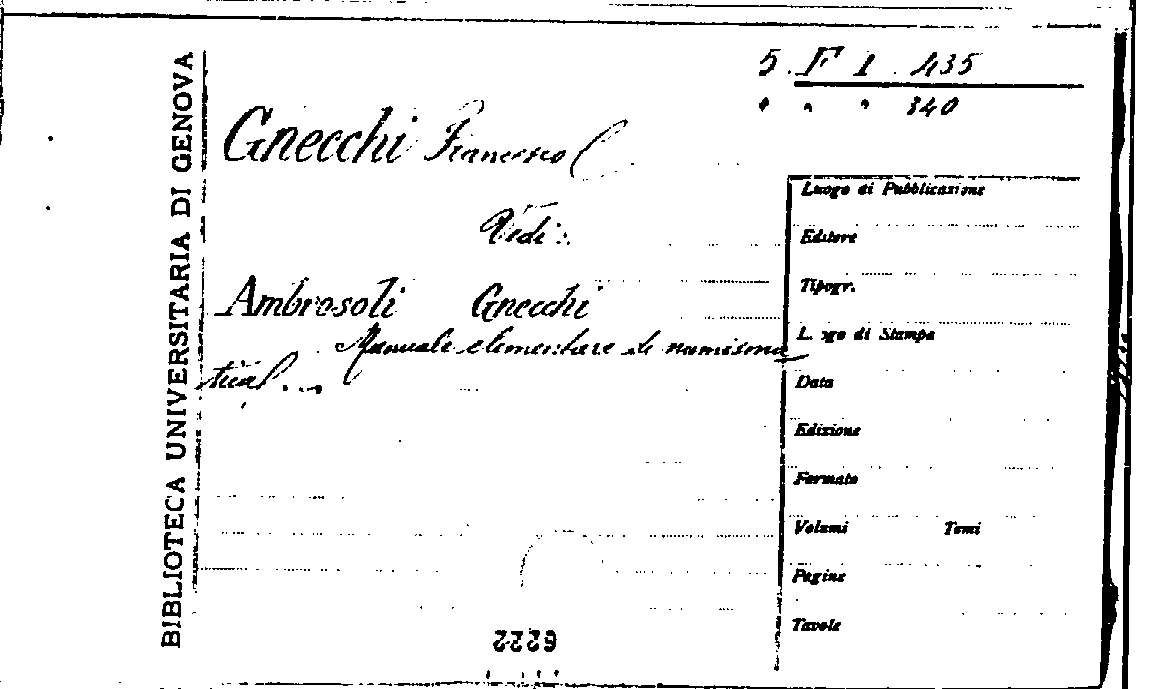 BIBLIOTECA UNIVERSITARIA DI GENOVA
5. F 1. 435
" " " 340
Gnecchi Francesco
Vedi:
Ambrosoli Gnecchi
Manuale elementare di numisma
tica
Luogo di Pubblicazione
Editore
Tipogr.
L. ogo di Stampa
Data
Edizione
Formato
Volumi Tomi
Pagine
Tavole
6222